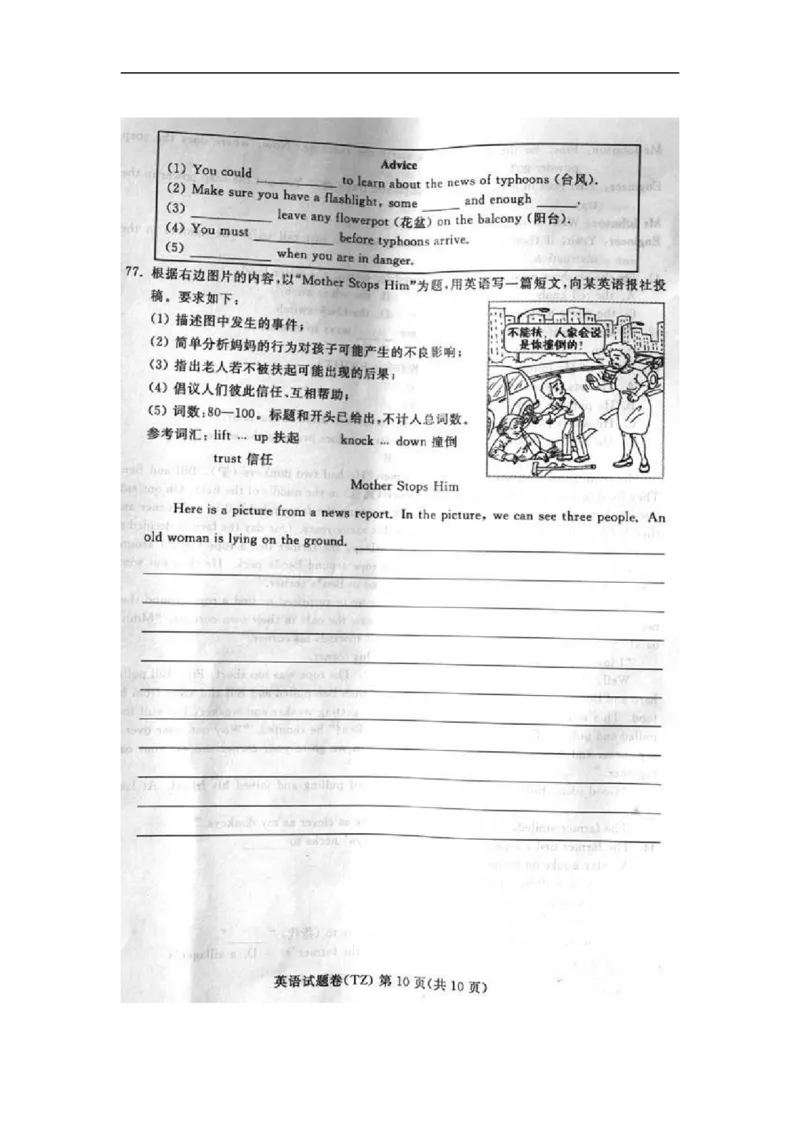 Advice
(1) You could ____________ to learn about the news of typhoons (台风).
(2) Make sure you have a flashlight, some ______ and enough ______.
(3) ____________ leave any flowerpot (花盆) on the balcony (阳台).
(4) You must ____________ before typhoons arrive.
(5) ____________ when you are in danger.
77. 根据右边图片的内容,以“Mother Stops Him”为题,用英语写一篇短文,向某英语报社投
稿。要求如下:
(1) 描述图中发生的事件;
(2) 简单分析妈妈的行为对孩子可能产生的不良影响;
(3) 指出老人若不被扶起可能出现的后果;
(4) 倡议人们彼此信任、互相帮助;
(5) 词数:80—100。标题和开头已给出,不计人总词数。
参考词汇:lift … up 扶起 knock … down 撞倒
trust 信任
不能扶,人家会说
是你撞倒的!
Mother Stops Him
Here is a picture from a news report. In the picture, we can see three people. An
old woman is lying on the ground.
英语试题卷(TZ) 第 10 页(共 10 页)